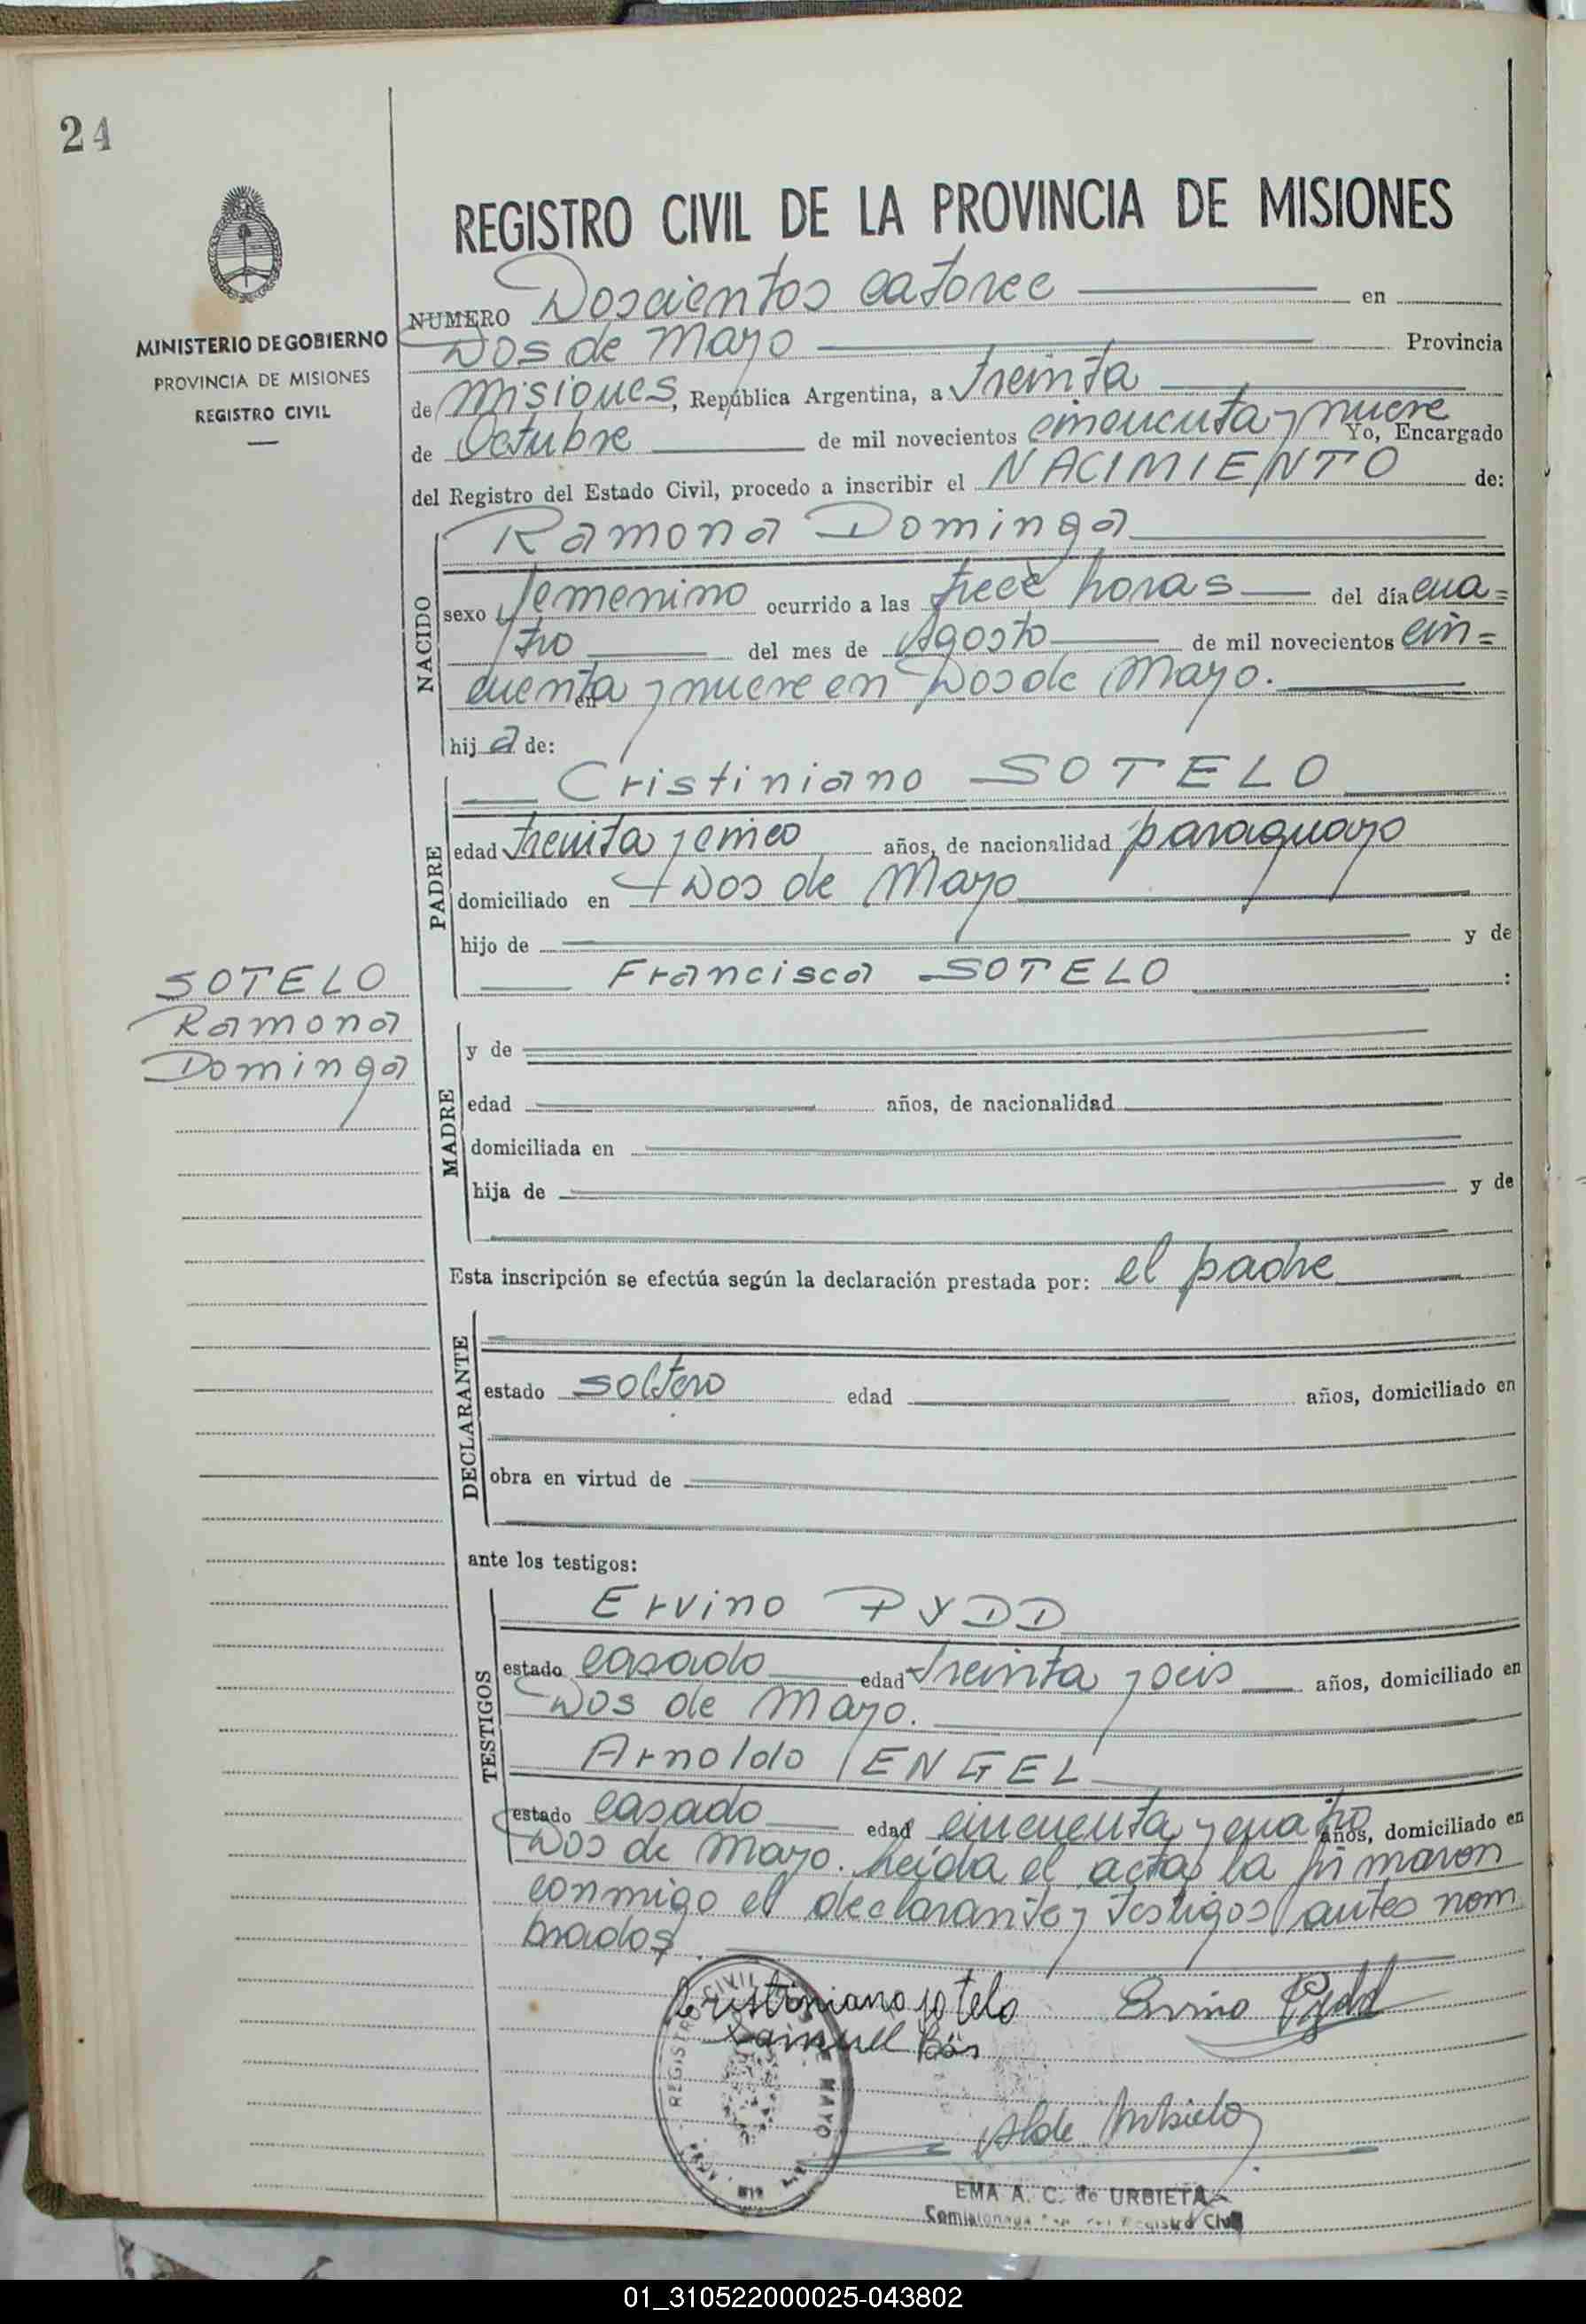 24
MINISTERIO DE GOBIERNO
PROVINCIA DE MISIONES
REGISTRO CIVIL
REGISTRO CIVIL DE LA PROVINCIA DE MISIONES
NUMERO Doscientos catorce en
Dos de Mayo Provincia
de Misiones, República Argentina, a treinta
de Octubre de mil novecientos cincuenta y nueve Yo, Encargado
del Registro del Estado Civil, procedo a inscribir el NACIMIENTO de:
NACIDO
Ramona Dominga
sexo femenino ocurrido a las trece horas del día cua=
tro del mes de Agosto de mil novecientos cin=
cuenta y nueve en Dos de Mayo.
en
hija de:
PADRE
Cristiniano SOTELO
edad treinta y cinco años, de nacionalidad paraguayo
domiciliado en Dos de Mayo
hijo de y de
Francisca SOTELO :
SOTELO
Ramona
Dominga
MADRE
y de
edad años, de nacionalidad
domiciliada en
hija de y de
Esta inscripción se efectúa según la declaración prestada por: el padre
DECLARANTE
estado soltero edad años, domiciliado en
obra en virtud de
ante los testigos:
TESTIGOS
Ervino PYDD
estado casado edad treinta y seis años, domiciliado en
Dos de Mayo.
Arnoldo ENGEL
estado casado edad cincuenta y cuatro años, domiciliado en
Dos de Mayo. Leída el acta, la firmaron
conmigo el declarante y testigos antes nom
brados.
Cristiniano sotelo Ervino Pydd
REGISTRO CIVIL
MAYO
EMA A. C. de URBIETA
Registro Civil
01_310522000025-043802